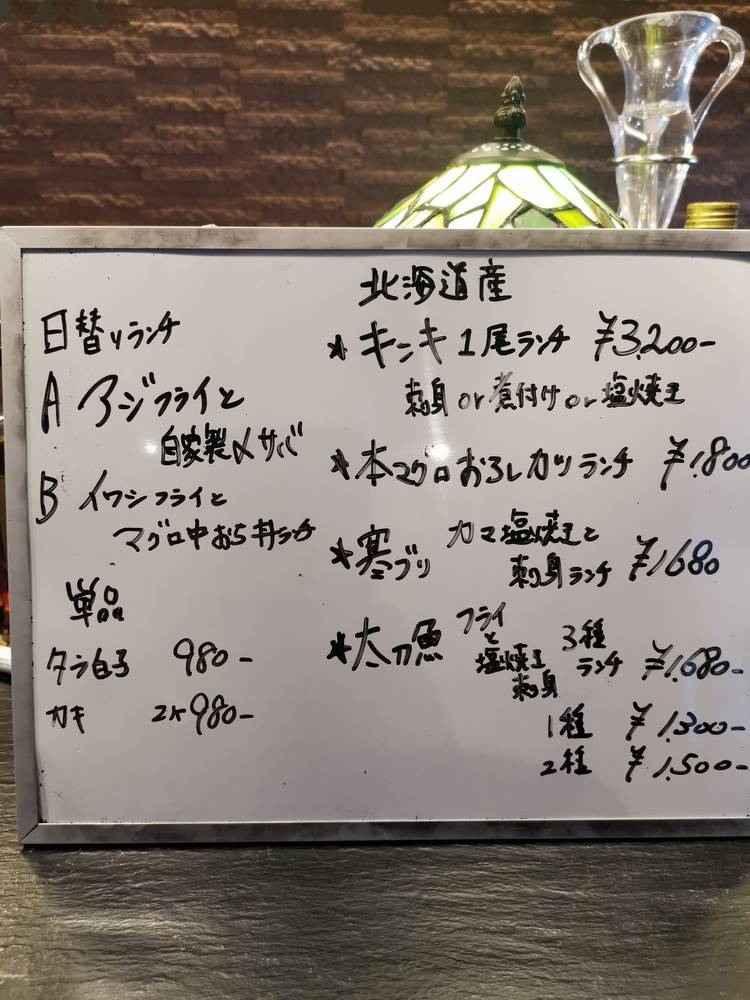 日替りランチ
A アジフライと
自家製〆サバ
B イワシフライと
マグロ中おち丼ランチ
単品
タラ白子 980-
カキ 2ヶ980-
北海道産
*キンキ1尾ランチ ¥3,200-
刺身or煮付けor塩焼き
*本マグロおろしカツランチ ¥1,800
*寒ブリ カマ塩焼きと
刺身ランチ ¥1,680
*太刀魚 フライ
と
塩焼き
刺身
3種
ランチ ¥1,680-
1種 ¥1,300-
2種 ¥1,500-